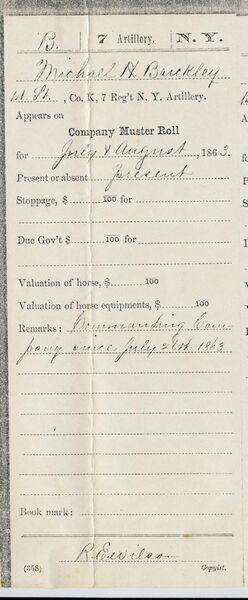 B. | 7 Artillery. | N. Y.
Michael H Barckley
1st Lt., Co. K, 7 Reg't N. Y. Artillery.
Appears on
Company Muster Roll
for July & August, 1863.
Present or absent Present
Stoppage, $ 100 for
Due Gov't $ 100 for
Valuation of horse, $ 100
Valuation of horse equipments, $ 100
Remarks: Commanding Com-
pany since July 26th 1863
Book mark:
R. E. Wilson
(358) Copyist.